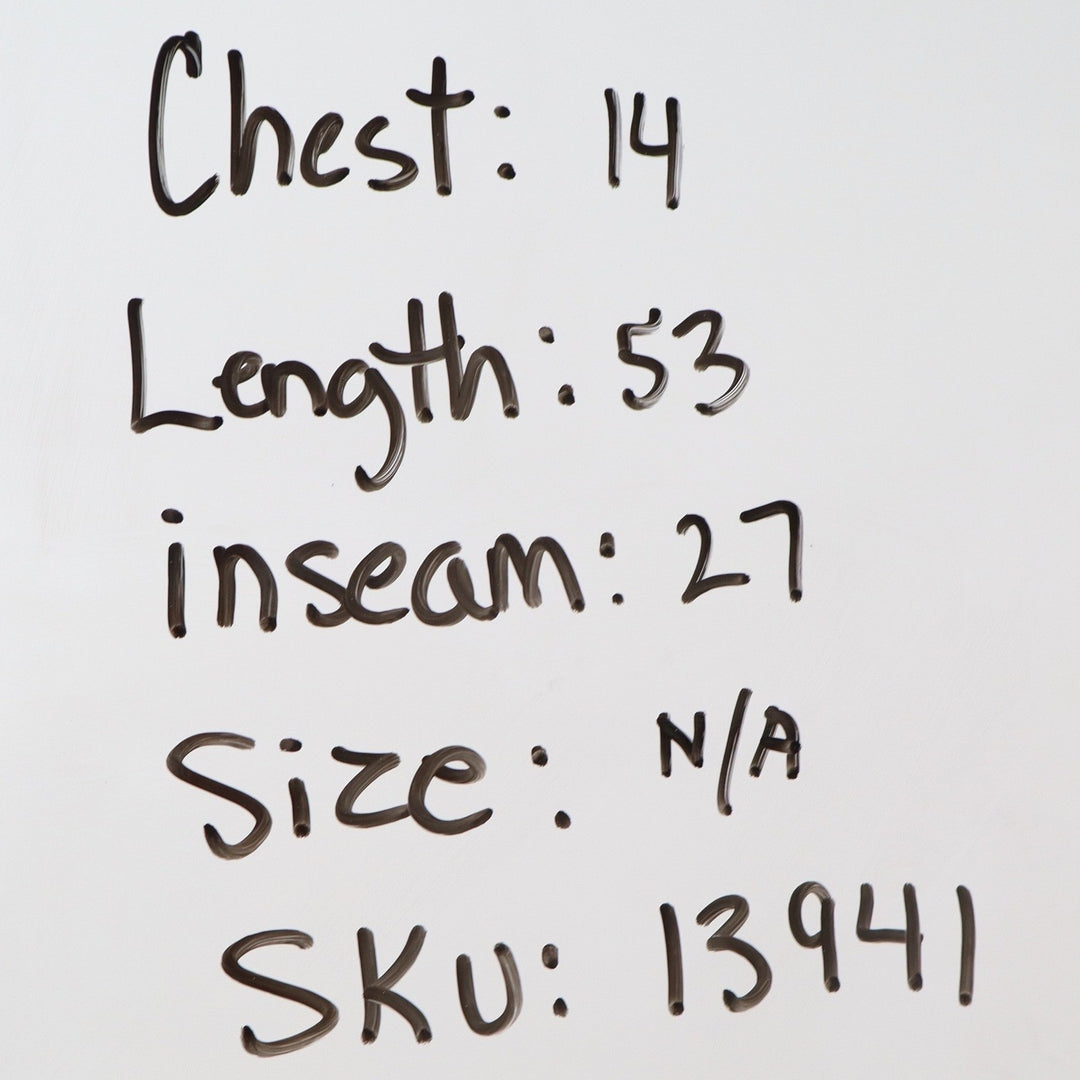 Chest: 14
Length: 53
inseam: 27
Size: N/A
SKU: 13941